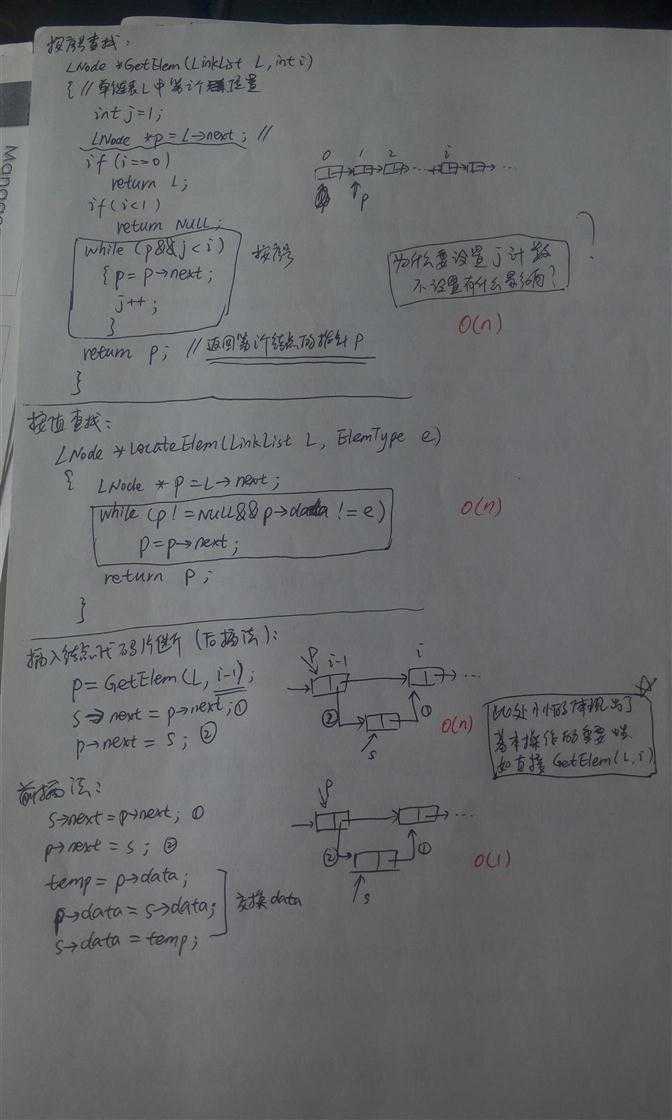 Manage
按序号查找:
LNode *GetElem(LinkList L, int i)
{ // 单链表L中第i个位置
int j=1;
LNode *p=L→next; //
if(i==0)
return L;
if(i<1)
return NULL;
while(p&&j<i)
{ p=p→next;
j++;
}
按序号
return p; //返回第i个结点的指针p
}
0 1 2 ... i ...
p
为什么要设置j计数
不设置有什么影响?
?
O(n)
按值查找:
LNode *LocateElem(LinkList L, ElemType e)
{ LNode *p=L→next;
while(p!=NULL&&p→data!=e)
p=p→next;
return p;
}
O(n)
插入结点代码片断(后插法):
p=GetElem(L,i-1);
s→next=p→next;①
p→next=s;②
p i-1 i
...
② ①
s
O(n)
此处小小的体现出了
基本操作的重要性
如直接GetElem(L,i)
前插法:
s→next=p→next; ①
p→next=s; ②
temp=p→data;
p→data=s→data;
s→data=temp;
交换data
p
...
② ①
s
O(1)